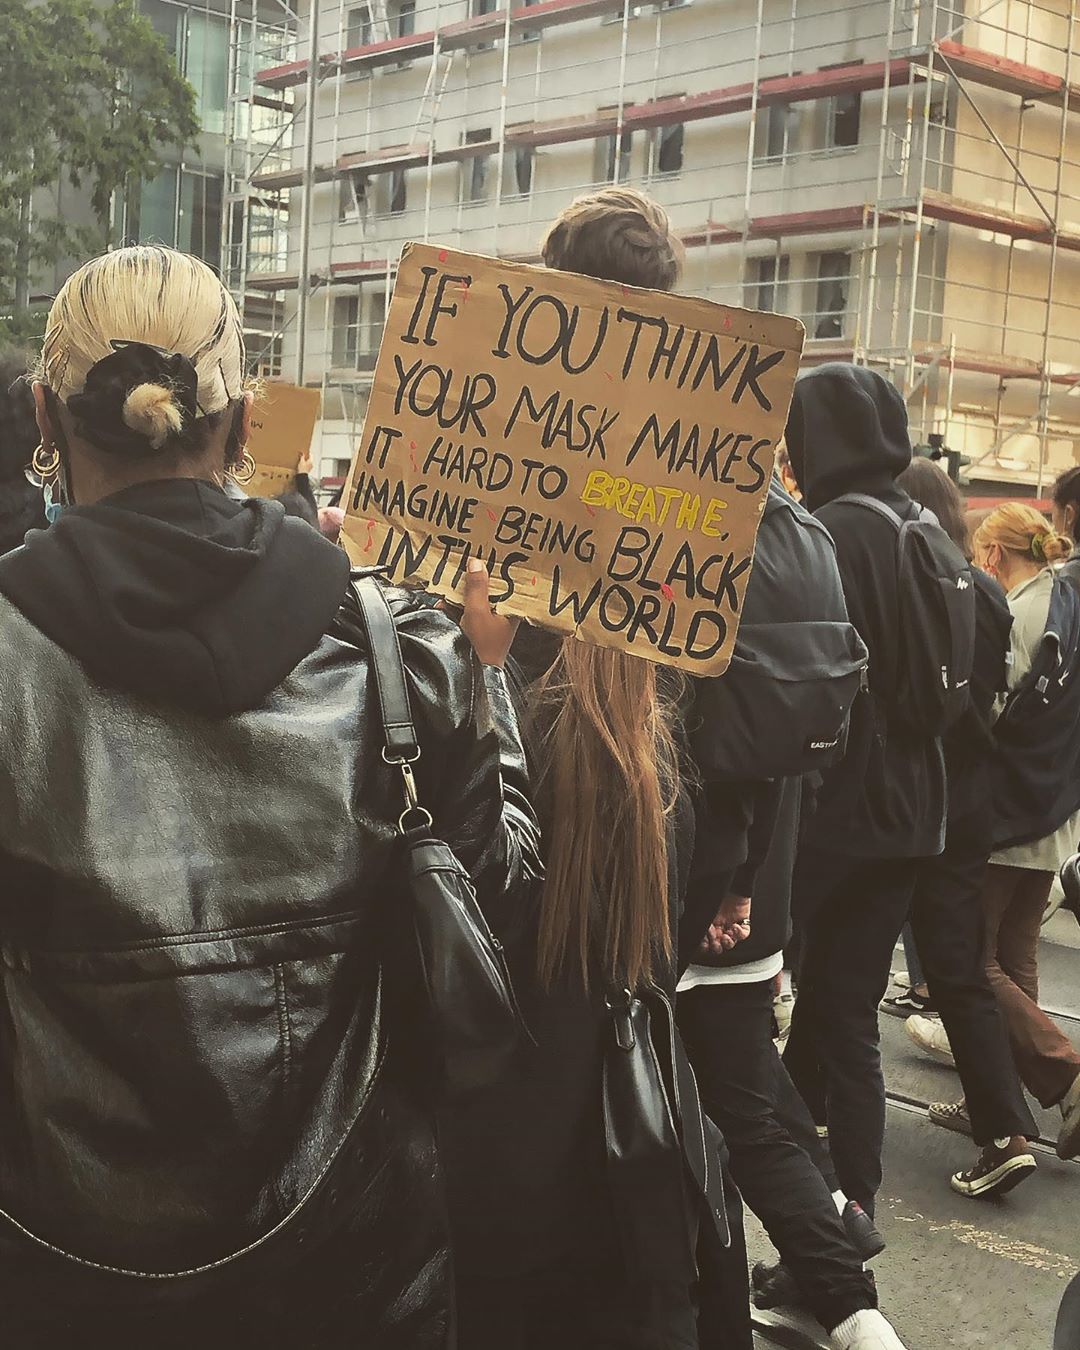 IF YOU THINK
YOUR MASK MAKES
IT HARD TO BREATHE.
IMAGINE BEING BLACK
IN THIS WORLD